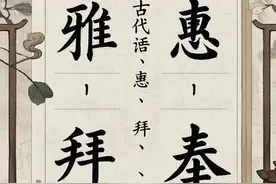 惠－奉
古代语、惠、拜、、
雅－拜